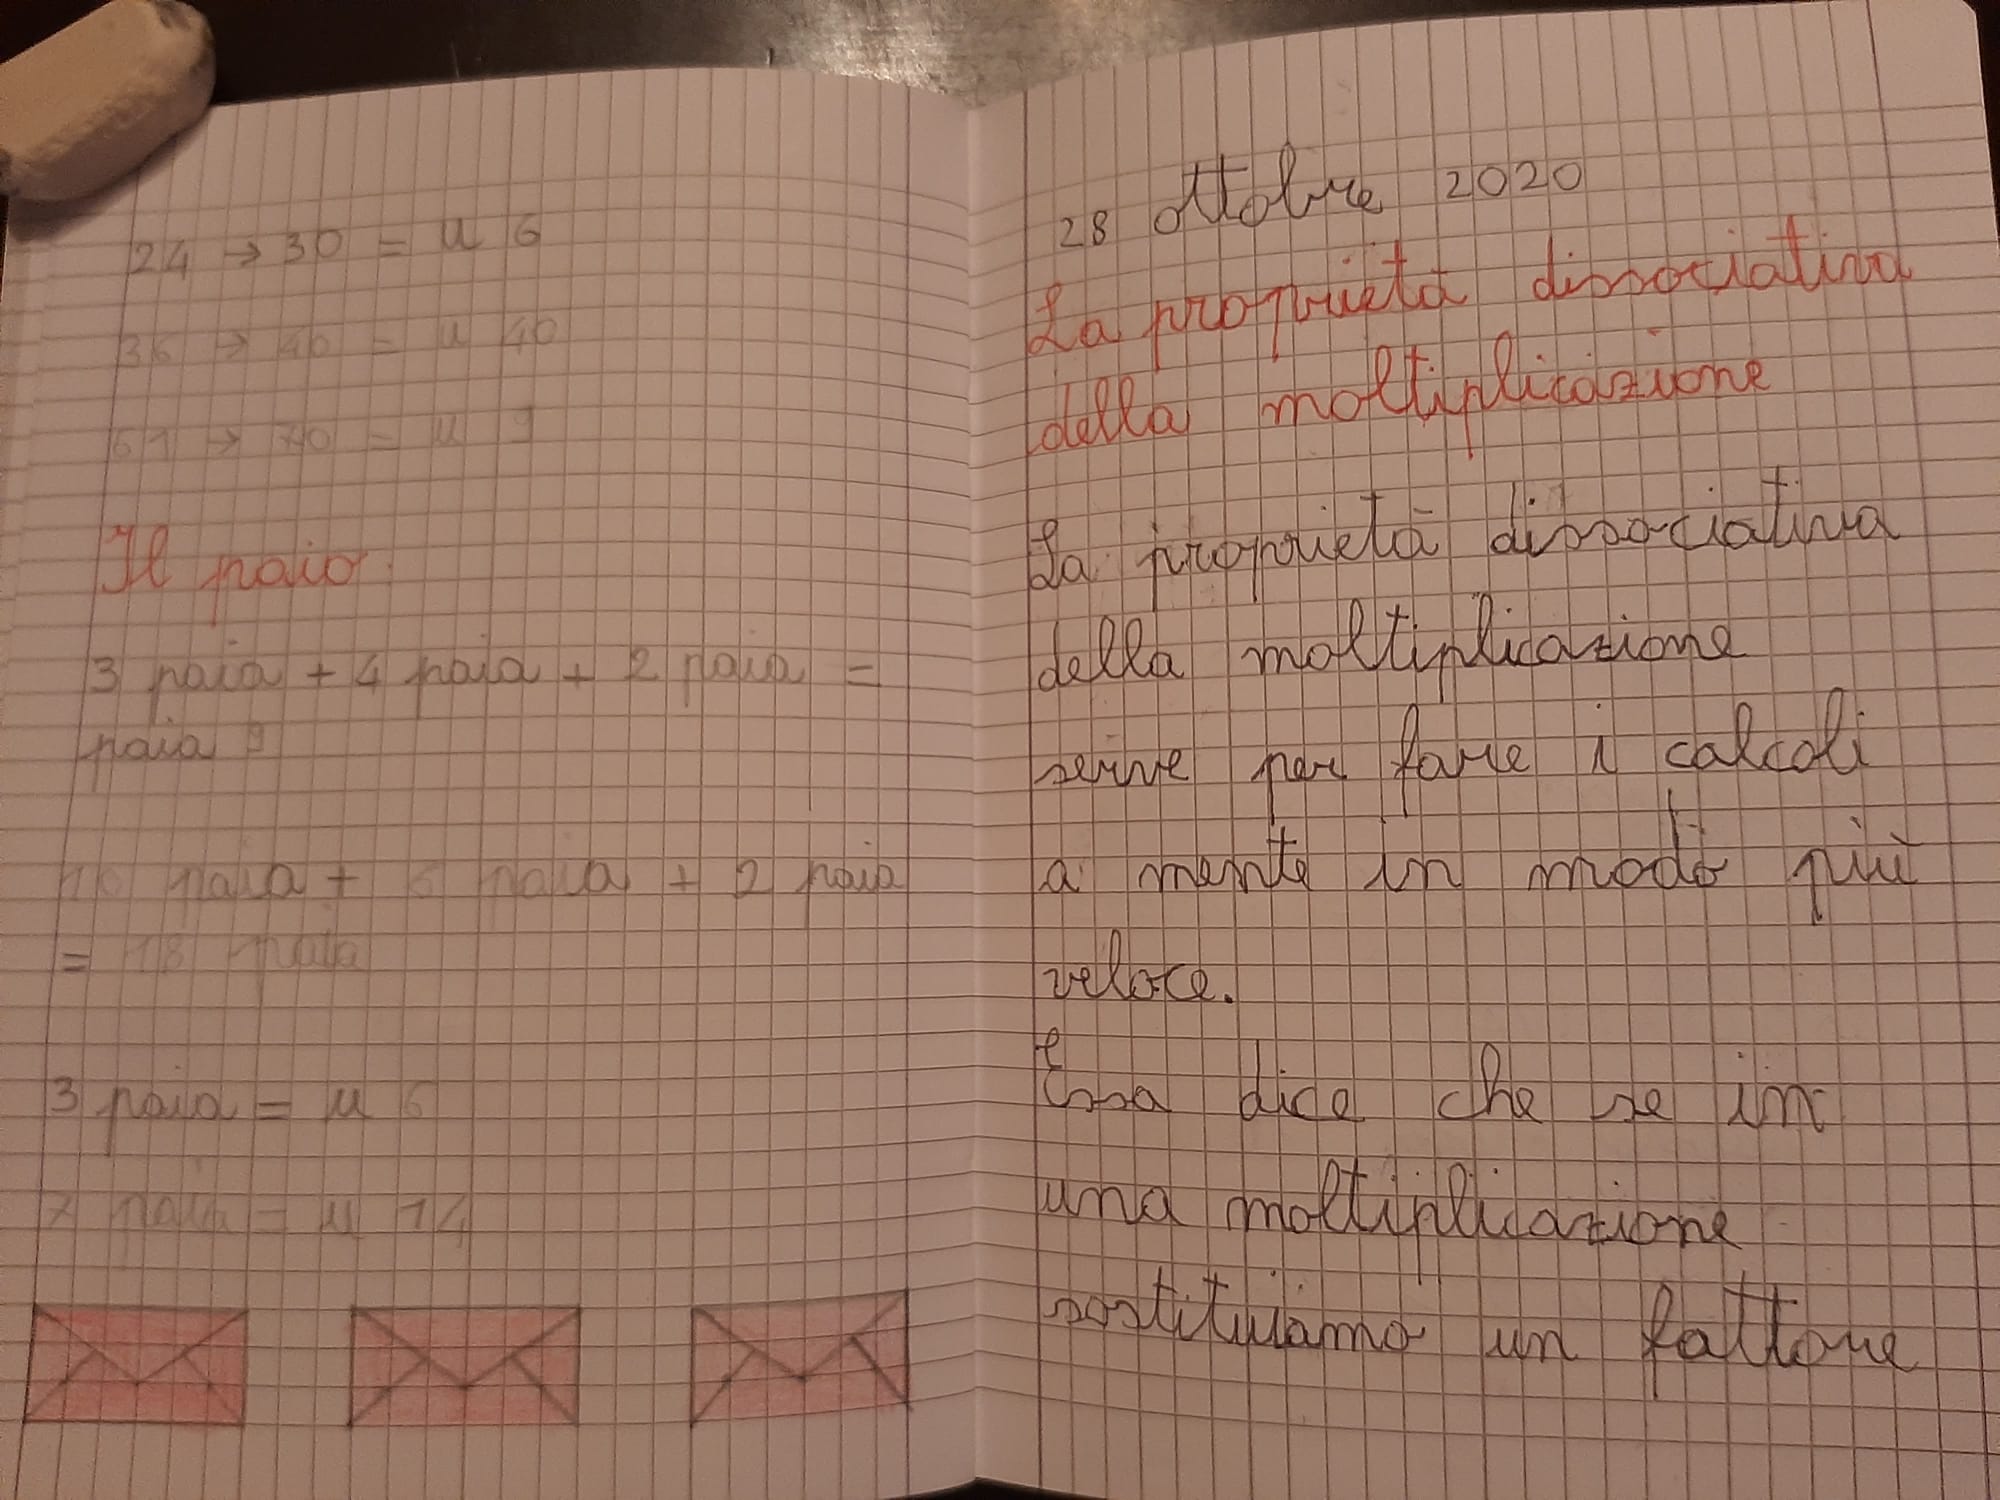 24 → 30 = u 6
36 → 40 = u 40
61 → 70 = u 9
Il paio
3 paia + 4 paia + 2 paia =
paia 9
10 paia + 6 paia + 2 paia
= 18 paia
3 paia = u 6
7 paia = u 14
28 ottobre 2020
La proprietà dissociativa
della moltiplicazione
La proprietà dissociativa
della moltiplicazione
serve per fare i calcoli
a mente in modo più
veloce.
Essa dice che se in
una moltiplicazione
sostituiamo un fattore